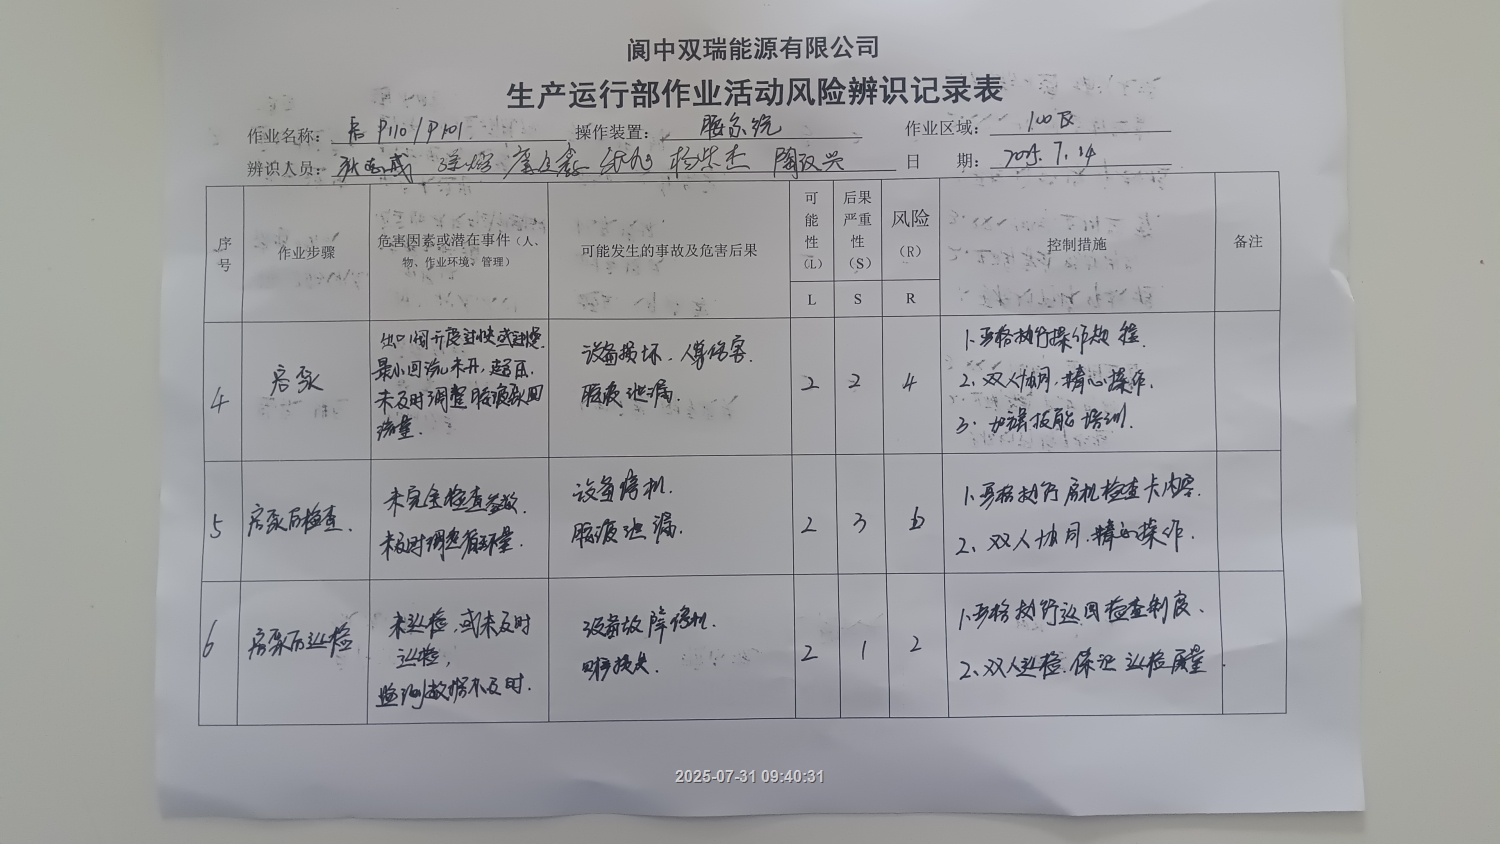 阆中双瑞能源有限公司
生产运行部作业活动风险辨识记录表
作业名称： 启P110/P101 操作装置： 胺系统 作业区域： 100区
辨识人员： 陶汉兴 日期： 2025.7.14
序号 作业步骤 危害因素或潜在事件（人、物、作业环境、管理） 可能发生的事故及危害后果 可能性（L） 后果严重性（S） 风险（R） 控制措施 备注
L S R
4 启泵
出口阀开度过快或过慢.
最小回流未开，超压.
未及时调整胺液泵回
流量.
设备损坏.人身伤害.
胺液泄漏.
2 2 4
1.严格执行操作规程.
2.双人协同.精心操作.
3.加强技能培训.
5 启泵后检查.
未完全检查参数.
未及时调整循环量.
设备停机.
胺液泄漏.
2 3 6
1.严格执行启机检查卡内容.
2、双人协同.精心操作.
6 启泵后巡检
未巡检,或未及时
巡检,
监测数据不及时.
设备故障停机.
财产损失.
2 1 2
1.严格执行巡回检查制度.
2、双人巡检.保证巡检质量.
2025-07-31 09:40:31